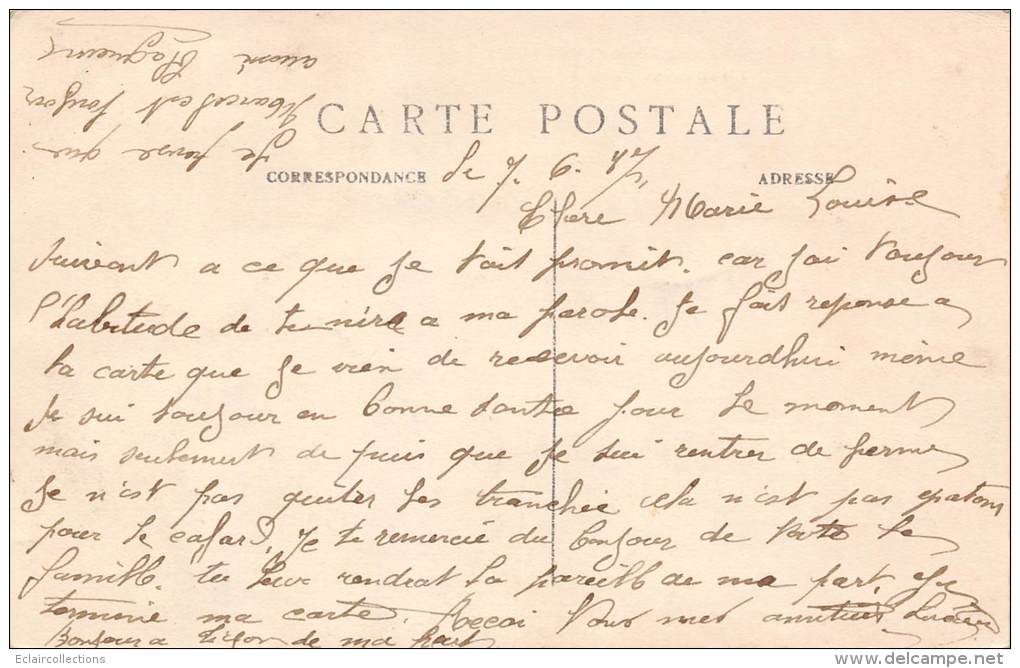 CARTE POSTALE
CORRESPONDANCE
ADRESSE
Je pense que
Marcel est toujour
aussi
le 7. 6. 17,
Chère Marie Louise
Suivant a ce que je tait promit. car jai toujour
l'habitude de tenire a ma parole. Je fait reponse a
la carte que je vien de recevoir aujourdhui même
Je sui toujour en bonne santée pour le moment
mais seulement de puis que je sui rentrer de perme
je n'est pas quiter les tranchée cela n'est pas epatant
pour le cafard, je te remercie du bonjour de toute la
famille. tu leur rendrat la pareille de ma part,
termine ma carte. Recoi tous mes amities Lucien
Bonjour a de ma part
Eclaircollections
delcampe.net